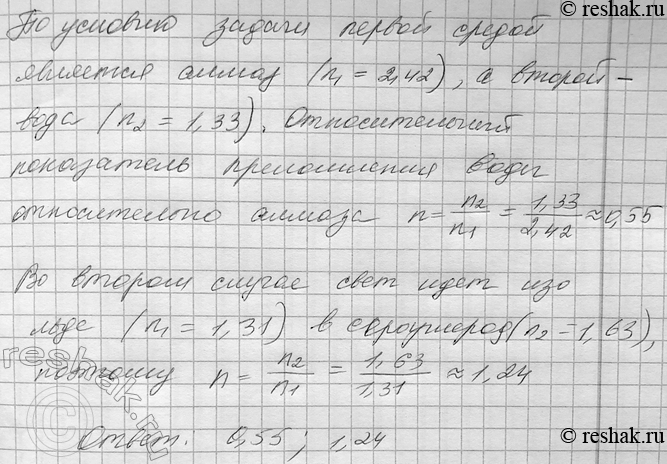 © reshak.ru
По условию задачи первой средой
является алмаз (n₁ = 2,42), а второй -
вода (n₂ = 1,33). Относительный
показатель преломления воды
относительно алмаза n = n₂/n₁ = 1,33/2,42 ≈ 0,55
Во втором случае свет идет изо
льда (n₁ = 1,31) в сероуглерод (n₂ = 1,63),
поэтому n = n₂/n₁ = 1,63/1,31 ≈ 1,24
Ответ: 0,55 ; 1,24
reshak.ru
© reshak.ru